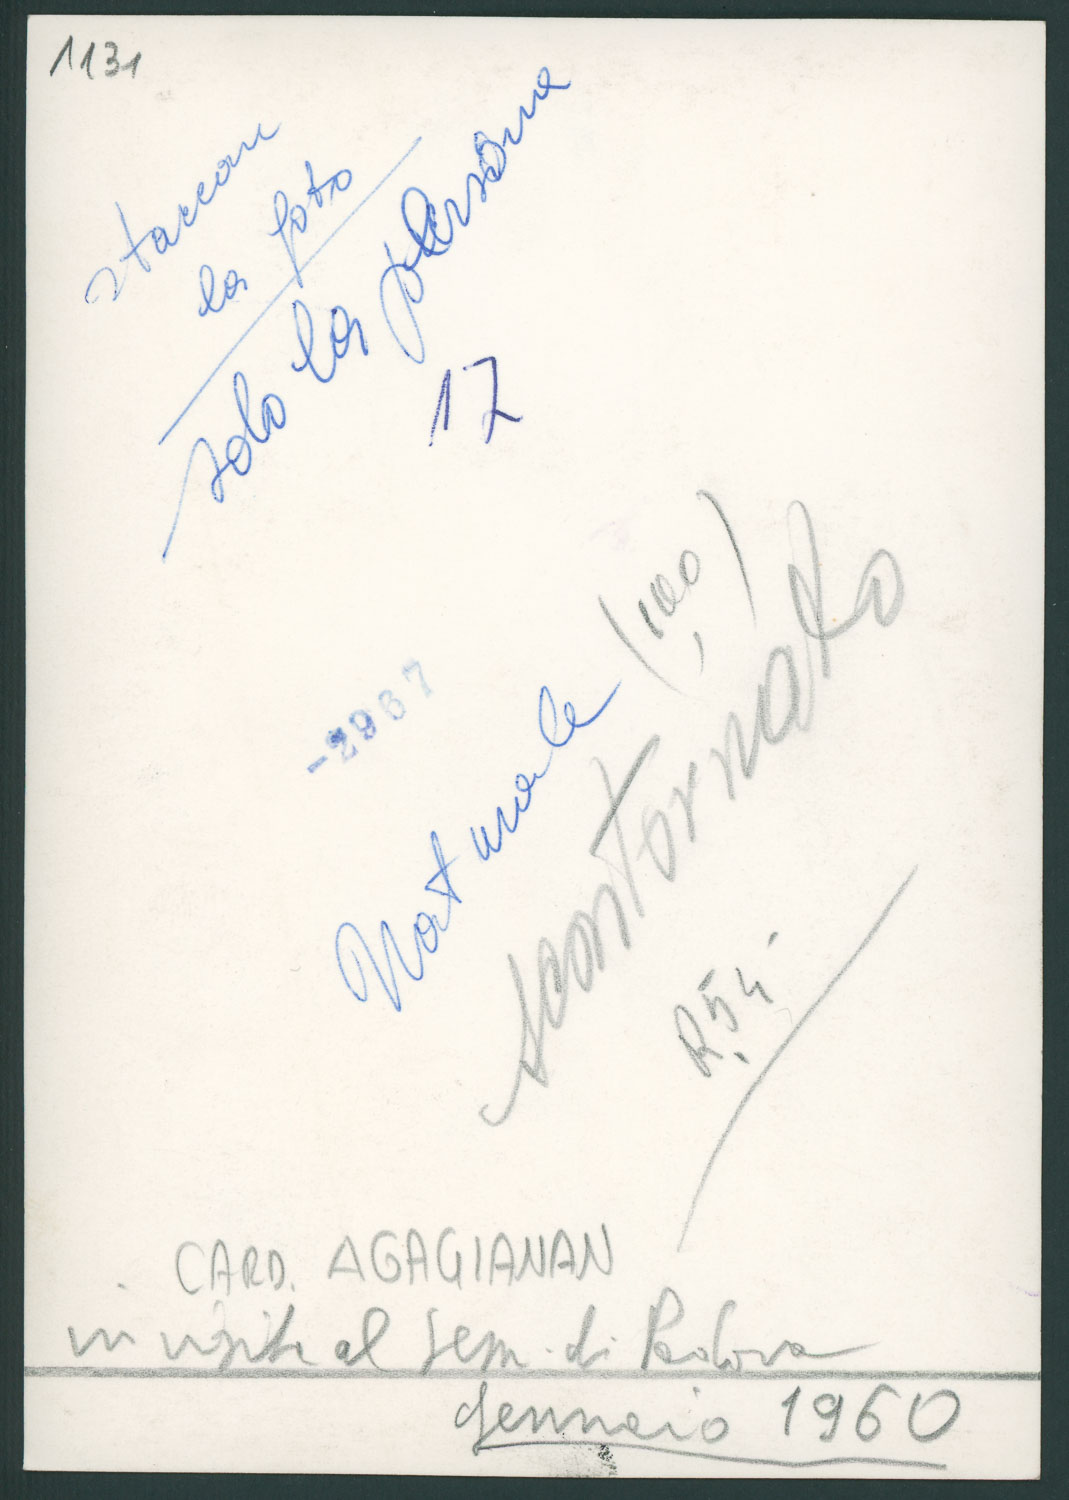 1131
staccare
la foto
solo la persona
17
(100)
-2967
Naturale
scontornato
R. 54
CARD. AGAGIANAN
in visita al Sem. di Padova
Gennaio 1960